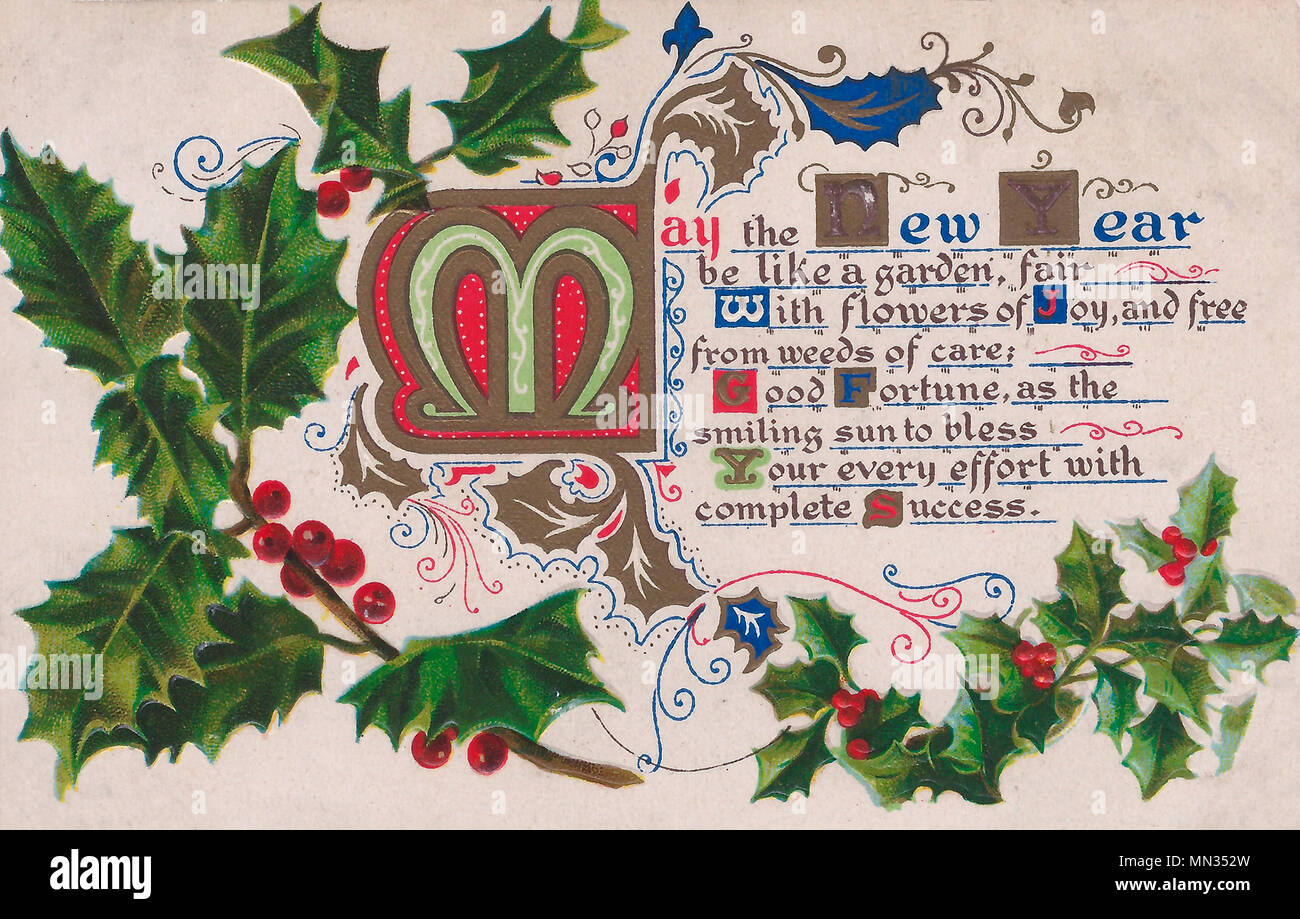 May the New Year
be like a garden, fair
With flowers of Joy, and free
from weeds of care;
Good Fortune, as the
smiling sun to bless
Your every effort with
complete Success.
a
alamy
a
alamy
a
alamy
Image ID: MN352W
www.alamy.com